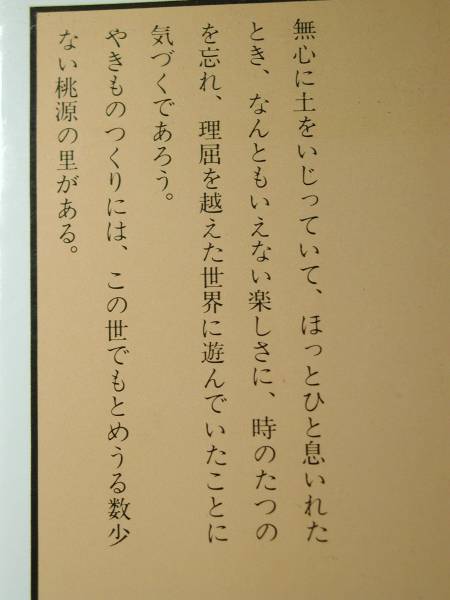 無心に土をいじっていて、ほっとひと息いれた
とき、なんともいえない楽しさに、時のたつの
を忘れ、理屈を越えた世界に遊んでいたことに
気づくであろう。
やきものつくりには、この世でもとめうる数少
ない桃源の里がある。